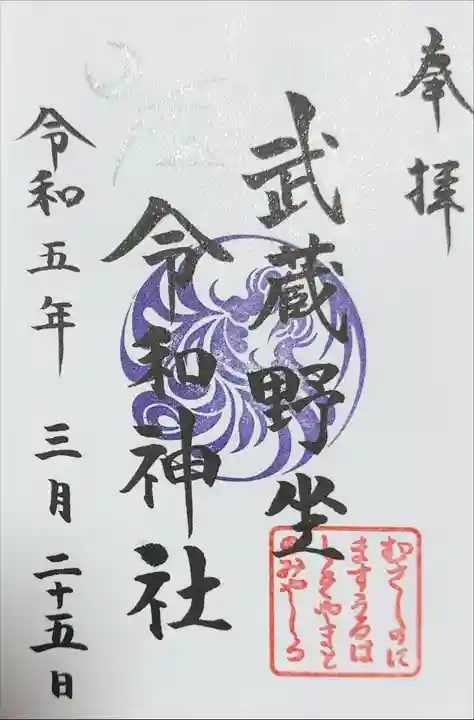 奉拝
武蔵野坐
令和神社
令和五年 三月二十五日
むさしのに
ますうるは
しきやまと
のみやしろ